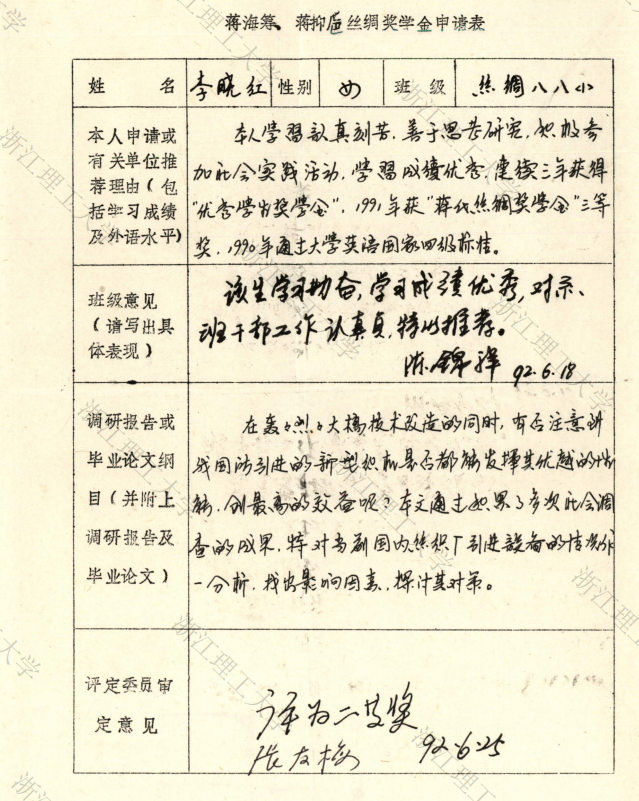 蒋海筹、蒋抑卮丝绸奖学金申请表
姓 名 李晓红 性别 女 班 级 丝绸八八小
本人申请或
有关单位推
荐理由（包
括学习成绩
及外语水平）
本人学习认真刻苦，善于思考研究，积极参
加社会实践活动，学习成绩优秀，连续三年获得
"优秀学生奖学金"，1991年获"蒋氏丝绸奖学金"三等
奖，1990年通过大学英语国家四级标准。
班级意见
（请写出具
体表现）
该生学习勤奋，学习成绩优秀，对系、
班干部工作认真负，特此推荐。
陈锦祥 92.6.18
调研报告或
毕业论文纲
目（并附上
调研报告及
毕业论文）
在轰轰烈烈大搞技术改造的同时，有否注意到
我国所引进的新型织机是否都能发挥其优越的性
能，创最高的效益呢？本文通过 多次社会调
查的成果，特对当前国内丝织厂引进设备的情况作
一分析，找出影响因素，探讨其对策。
评定委员审
定意见
评为二等奖
张友梅 92.6.25
浙江理工大学